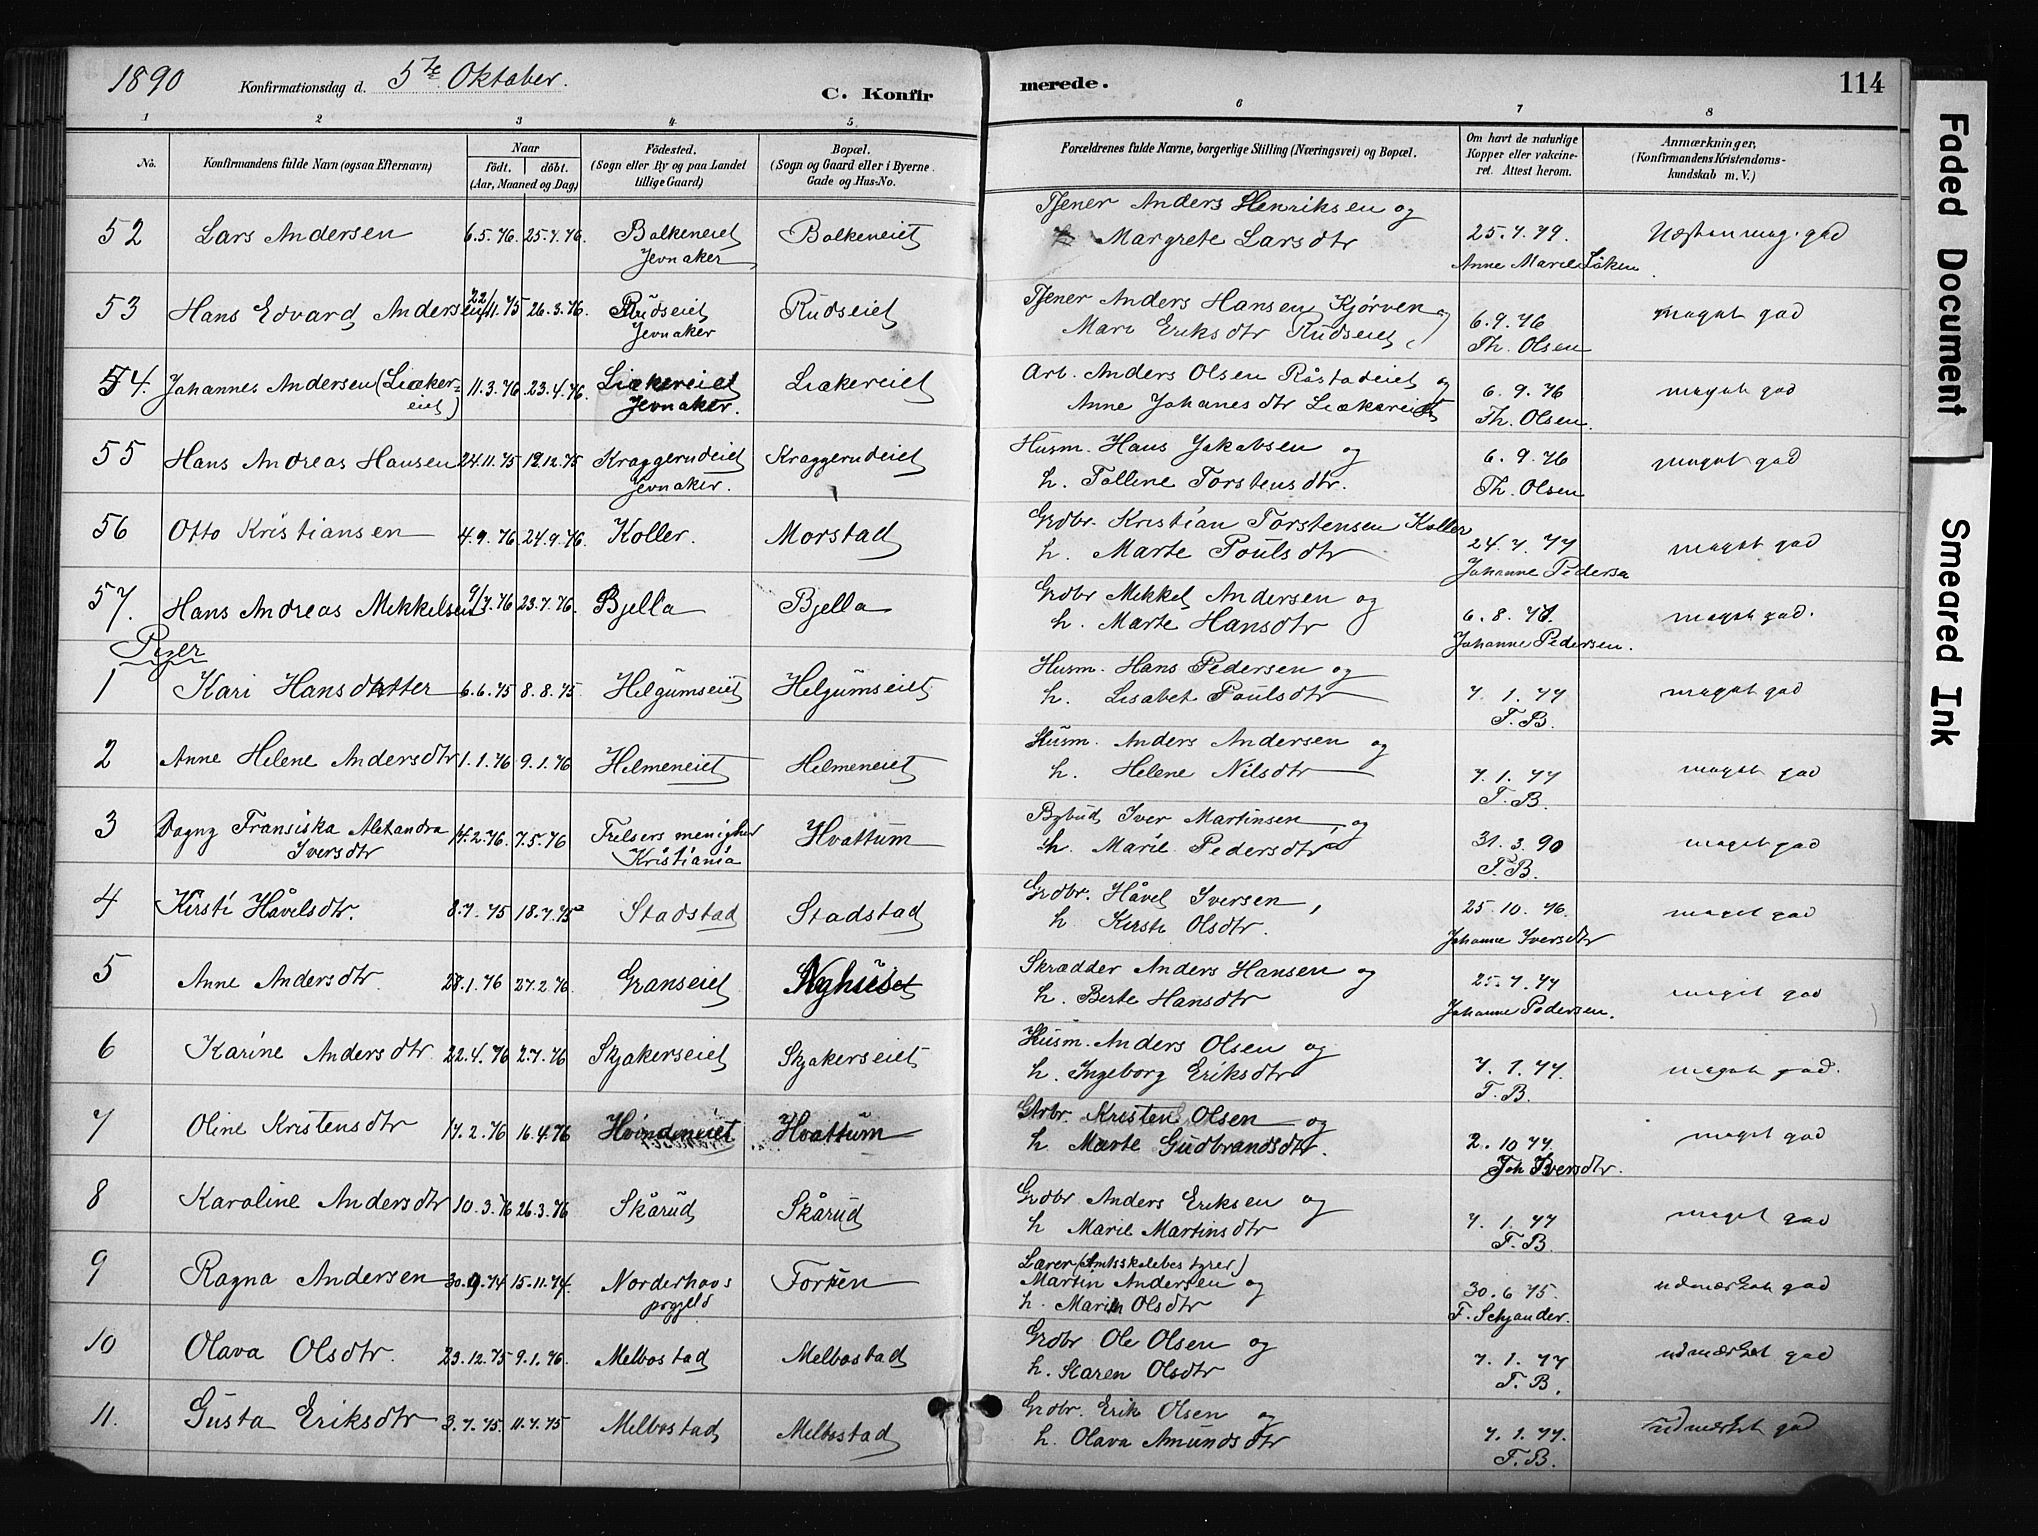 1890 Konfirmationsdag d. 5te Oktober. C. Konfirmerede. 114
1 2 3 4 5 6 7 8
No. Konfirmandens fulde Navn (ogsaa Efternavn) Naar født. døbt. (Aar, Maaned og Dag) Fødested. (Sogn eller By og paa Landet tillige Gaard) Bopæl. (Sogn og Gaard eller i Byerne Gade og Hus-No. Forældrenes fulde Navne, borgerlige Stilling (Næringsvei) og Bopæl. Om havt de naturlige Kopper eller vakcineret. Attest herom. Anmærkninger, (Konfirmandens Kristendomskundskab m. V.)
52 Lars Andersen 6.5.76. 25.7.76. Balkeneiet Jevnaker Balkeneiet Tjener Anders Henriksen og Margrete Larsdtr 25.7.79. Anne Marie Løken. Næsten meg. god
53 Hans Edvard Andersen 22/11.75 26.3.76. Rudseiet Jevnaker Rudseiet Tjener Anders Hansen Kjørven og Mari Eriksdtr Rudseiet 6.9.76 Th. Olsen meget god
54. Johannes Andersen (Liækereiet) 11.3.76 23.4.76. Liækereiet Jevnaker. Liækereiet Arb. Anders Olsen Råstadeiet og Anne Johanesdtr Liækereiet 6.9.76 Th. Olsen. meget god
55 Hans Andreas Hansen 24.11.75 12.12.75 Kraggerudeiet Jevnaker. Kraggerudeiet Husm. Hans Jakobsen og h. Tolline Torstensdtr. 6.9.76 Th. Olsen meget god
56 Otto Kristiansen 4.9.76 24.9.76. Koller. Morstad Grdbr. Kristian Torstensen Koller h. Marte Poulsdtr 24.7.77 Johanne Pedersen meget god
57. Hans Andreas Mikkelsen 9/7.76 23.7.76. Bjella Bjella Grdbr Mikkel Andersen og h. Marte Hansdtr 6.8.76. Johanne Pedersen. meget god.
Piger
1 Kari Hansdatter 6.6.75 8.8.75. Helgumseiet Helgumseiet Husm. Hans Pedersen og h. Lisabet Poulsdtr 7.1.77 F.B. meget god
2 Anne Helene Andersdtr 1.1.76 9.1.76 Helmeneiet Helmeneiet Husm. Anders Andersen og h. Helene Nilsdtr 7.1.77 F.B. meget god
3 Dagny Fransiska Alexandra Iversdtr 14.2.76. 7.5.76 Frelsers menighed Kristiania Hvattum Bybud Iver Martinsen, og h. Marie Pedersdtr 31.3.90 F.B. meget god
4 Kirsti Håvelsdtr. 8.7.75 18.7.75 Stadstad Stadstad Grdbr. Håvel Iversen, h. Kirsti Olsdtr. 25.10.76. Johanne Iversdtr meget god
5 Anne Andersdtr 28.1.76 27.2.76. Granseiet Nyhuset Skrædder Anders Hansen og h. Berte Hansdtr 25.7.77 Johanne Pedersen. meget god
6 Karine Andersdtr 22.4.76 2.7.76 Skjakerseiet Skjakerseiet Husm. Anders Olsen og h. Ingeborg Eriksdtr 7.1.77. F.B. meget god.
7 Oline Kristensdtr 17.2.76 16.4.76 Hvindeneiet Hvattum Kristen Olsen og h Marte Gudbrandsdtr. 2.10 77 Joh Iversdtr. meget god
8 Karoline Andersdtr 10.3.76 26.3.76 Skårud Skårud Grdbr Anders Eriksen og h Marie Martinsdtr 7.1.77 F.B. meget god
9 Ragna Andersen 30.9.74 15.11.74. Norderhovs prgjeld Forten Lærer (Amtsskolebestyrer) Martin Andersen og h. Marin Olsdtr 30.6 75. F. Schjander. udmærket god
10 Olava Olsdtr. 23.12.75 9.1.76. Melbostad Melbostad Grdbr Ole Olsen og h. Karen Olsdtr 7.1.77 F.B. udmærket god
11. Gusta Eriksdtr 3.7.75. 11.7.75 Melbostad Melbostad Grdbr. Erik Olsen og h. Olava Amundsdtr 7.1.77. F.B. udmærket god
Faded Document
Smeared Ink